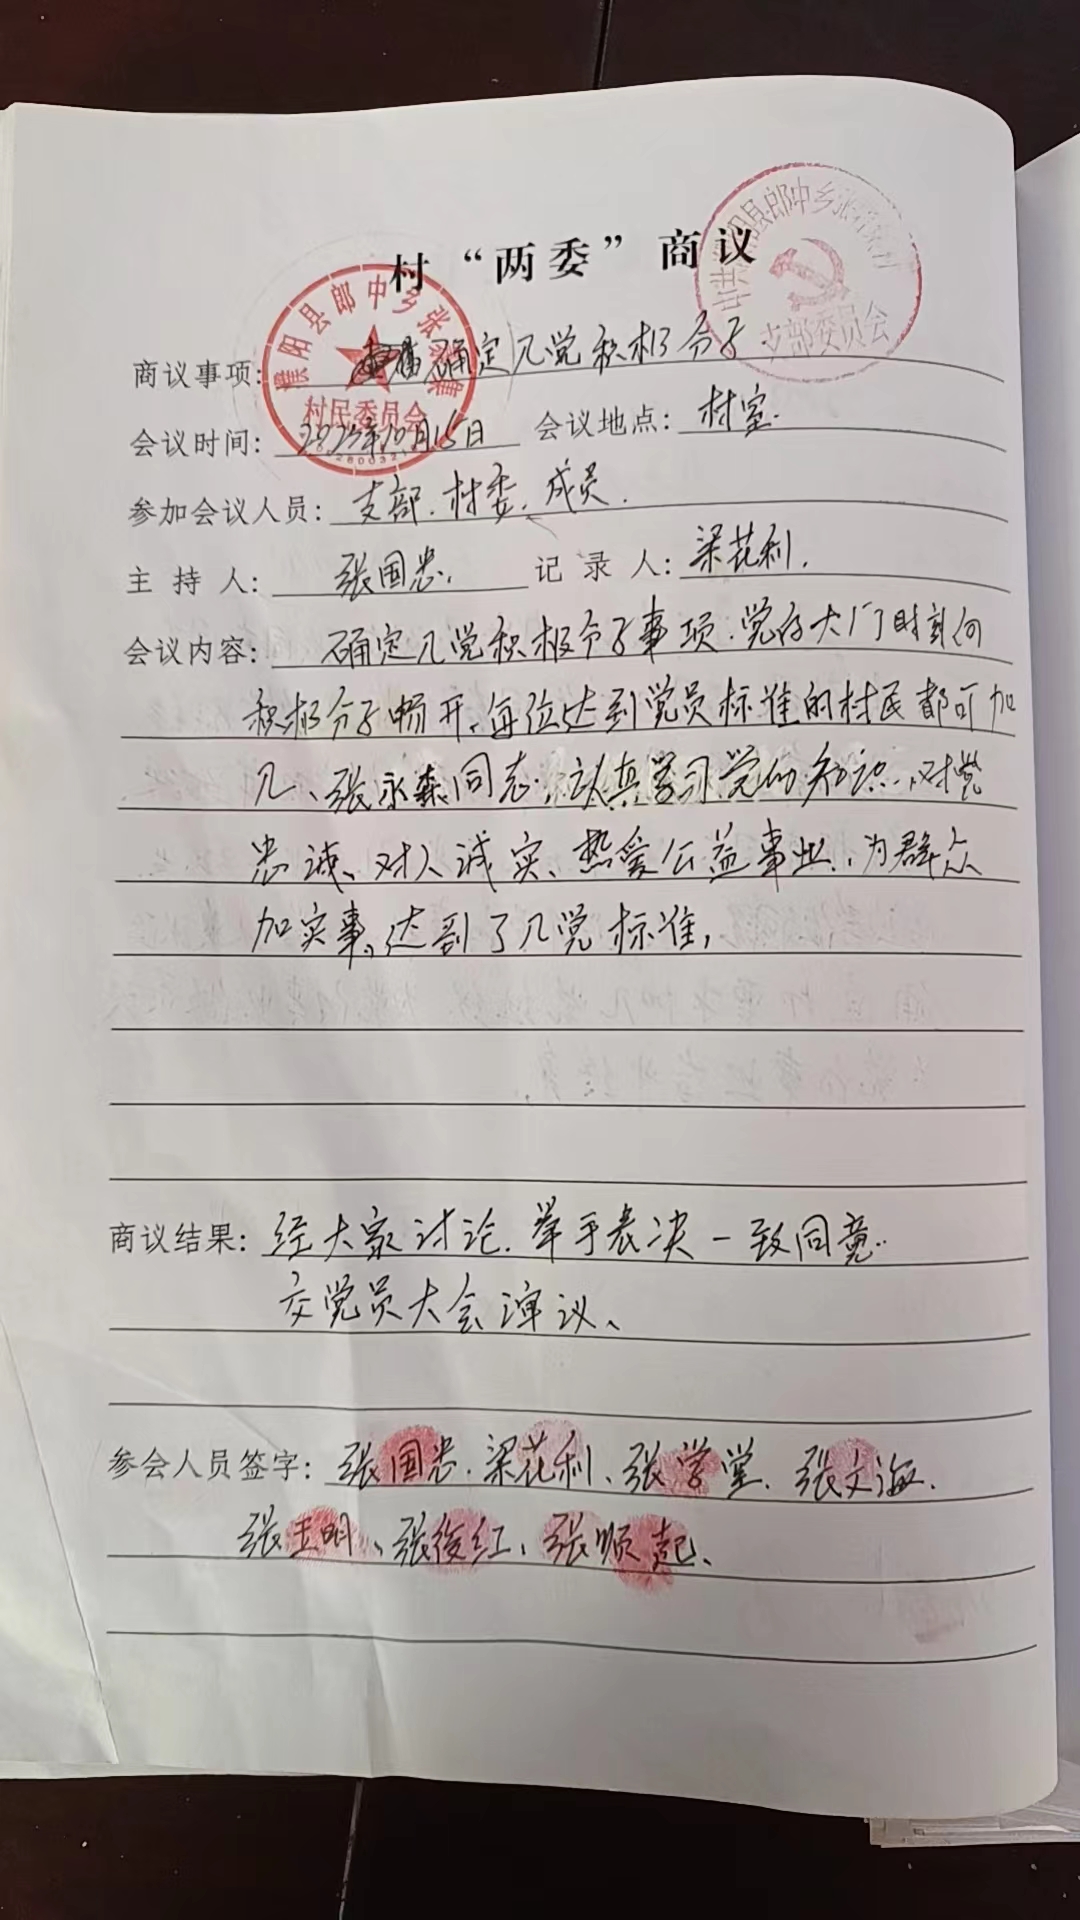 村“两委”商议
商议事项: 确定入党积极分子
会议时间: 2023年10月15日 会议地点: 村室.
参加会议人员: 支部.村委.成员.
主持人: 张国忠. 记录人: 梁花利.
会议内容: 确定入党积极分子事项.党的大门时刻向
积极分子畅开、每位达到党员标准的村民都可加
入、张永森同志:认真学习党的知识.对党
忠诚、对人诚实、热爱公益事业.为群众
加实事、达到了入党标准,
商议结果: 经大家讨论.举手表决一致同意.
交党员大会审议、
参会人员签字: 张国忠.梁花利、张学堂.张文海.
张玉明、张俊红、张顺起、
濮阳县郎中乡张
村民委员会
阳县郎中乡张
支部委员会